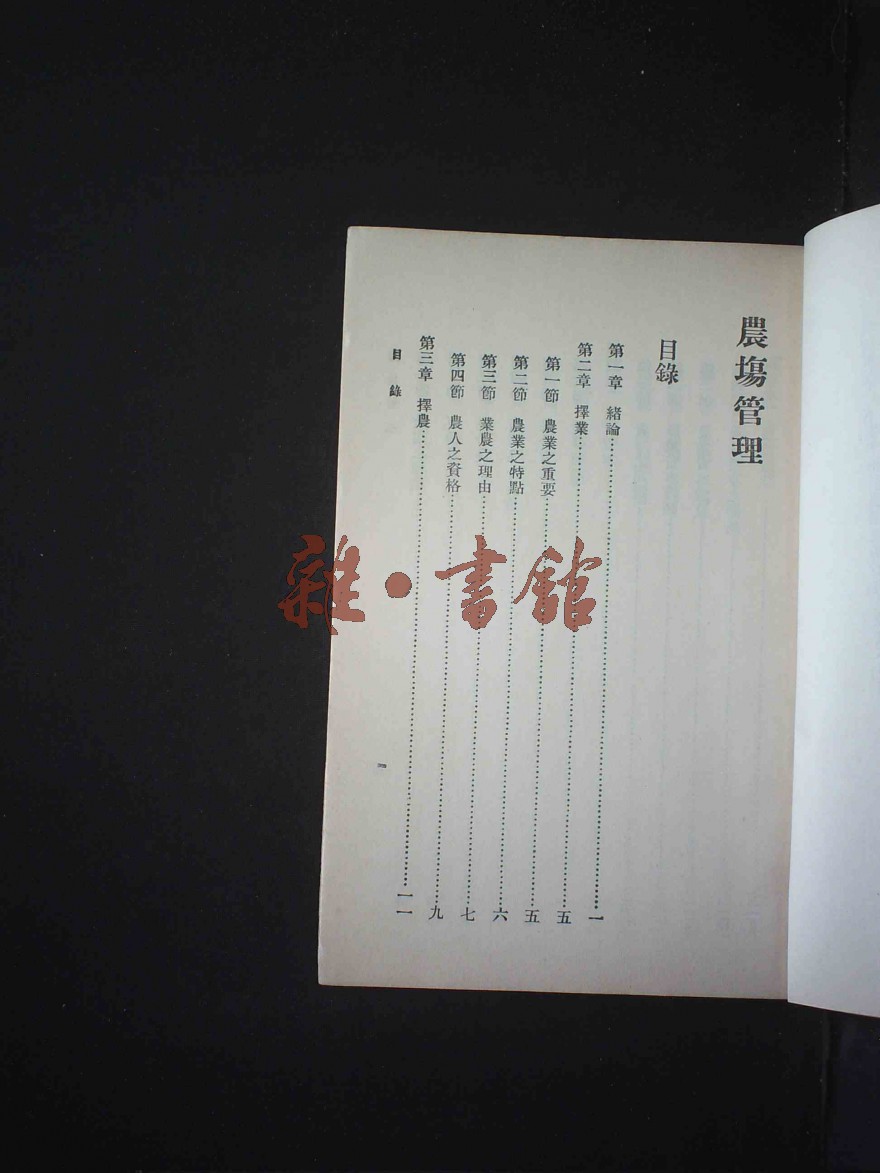 農塲管理
目錄
第一章 緒論……一
第二章 擇業……五
第一節 農業之重要……五
第二節 農業之特點……六
第三節 業農之理由……七
第四節 農人之資格……九
第三章 擇農……一一
目錄
一
雜·書館